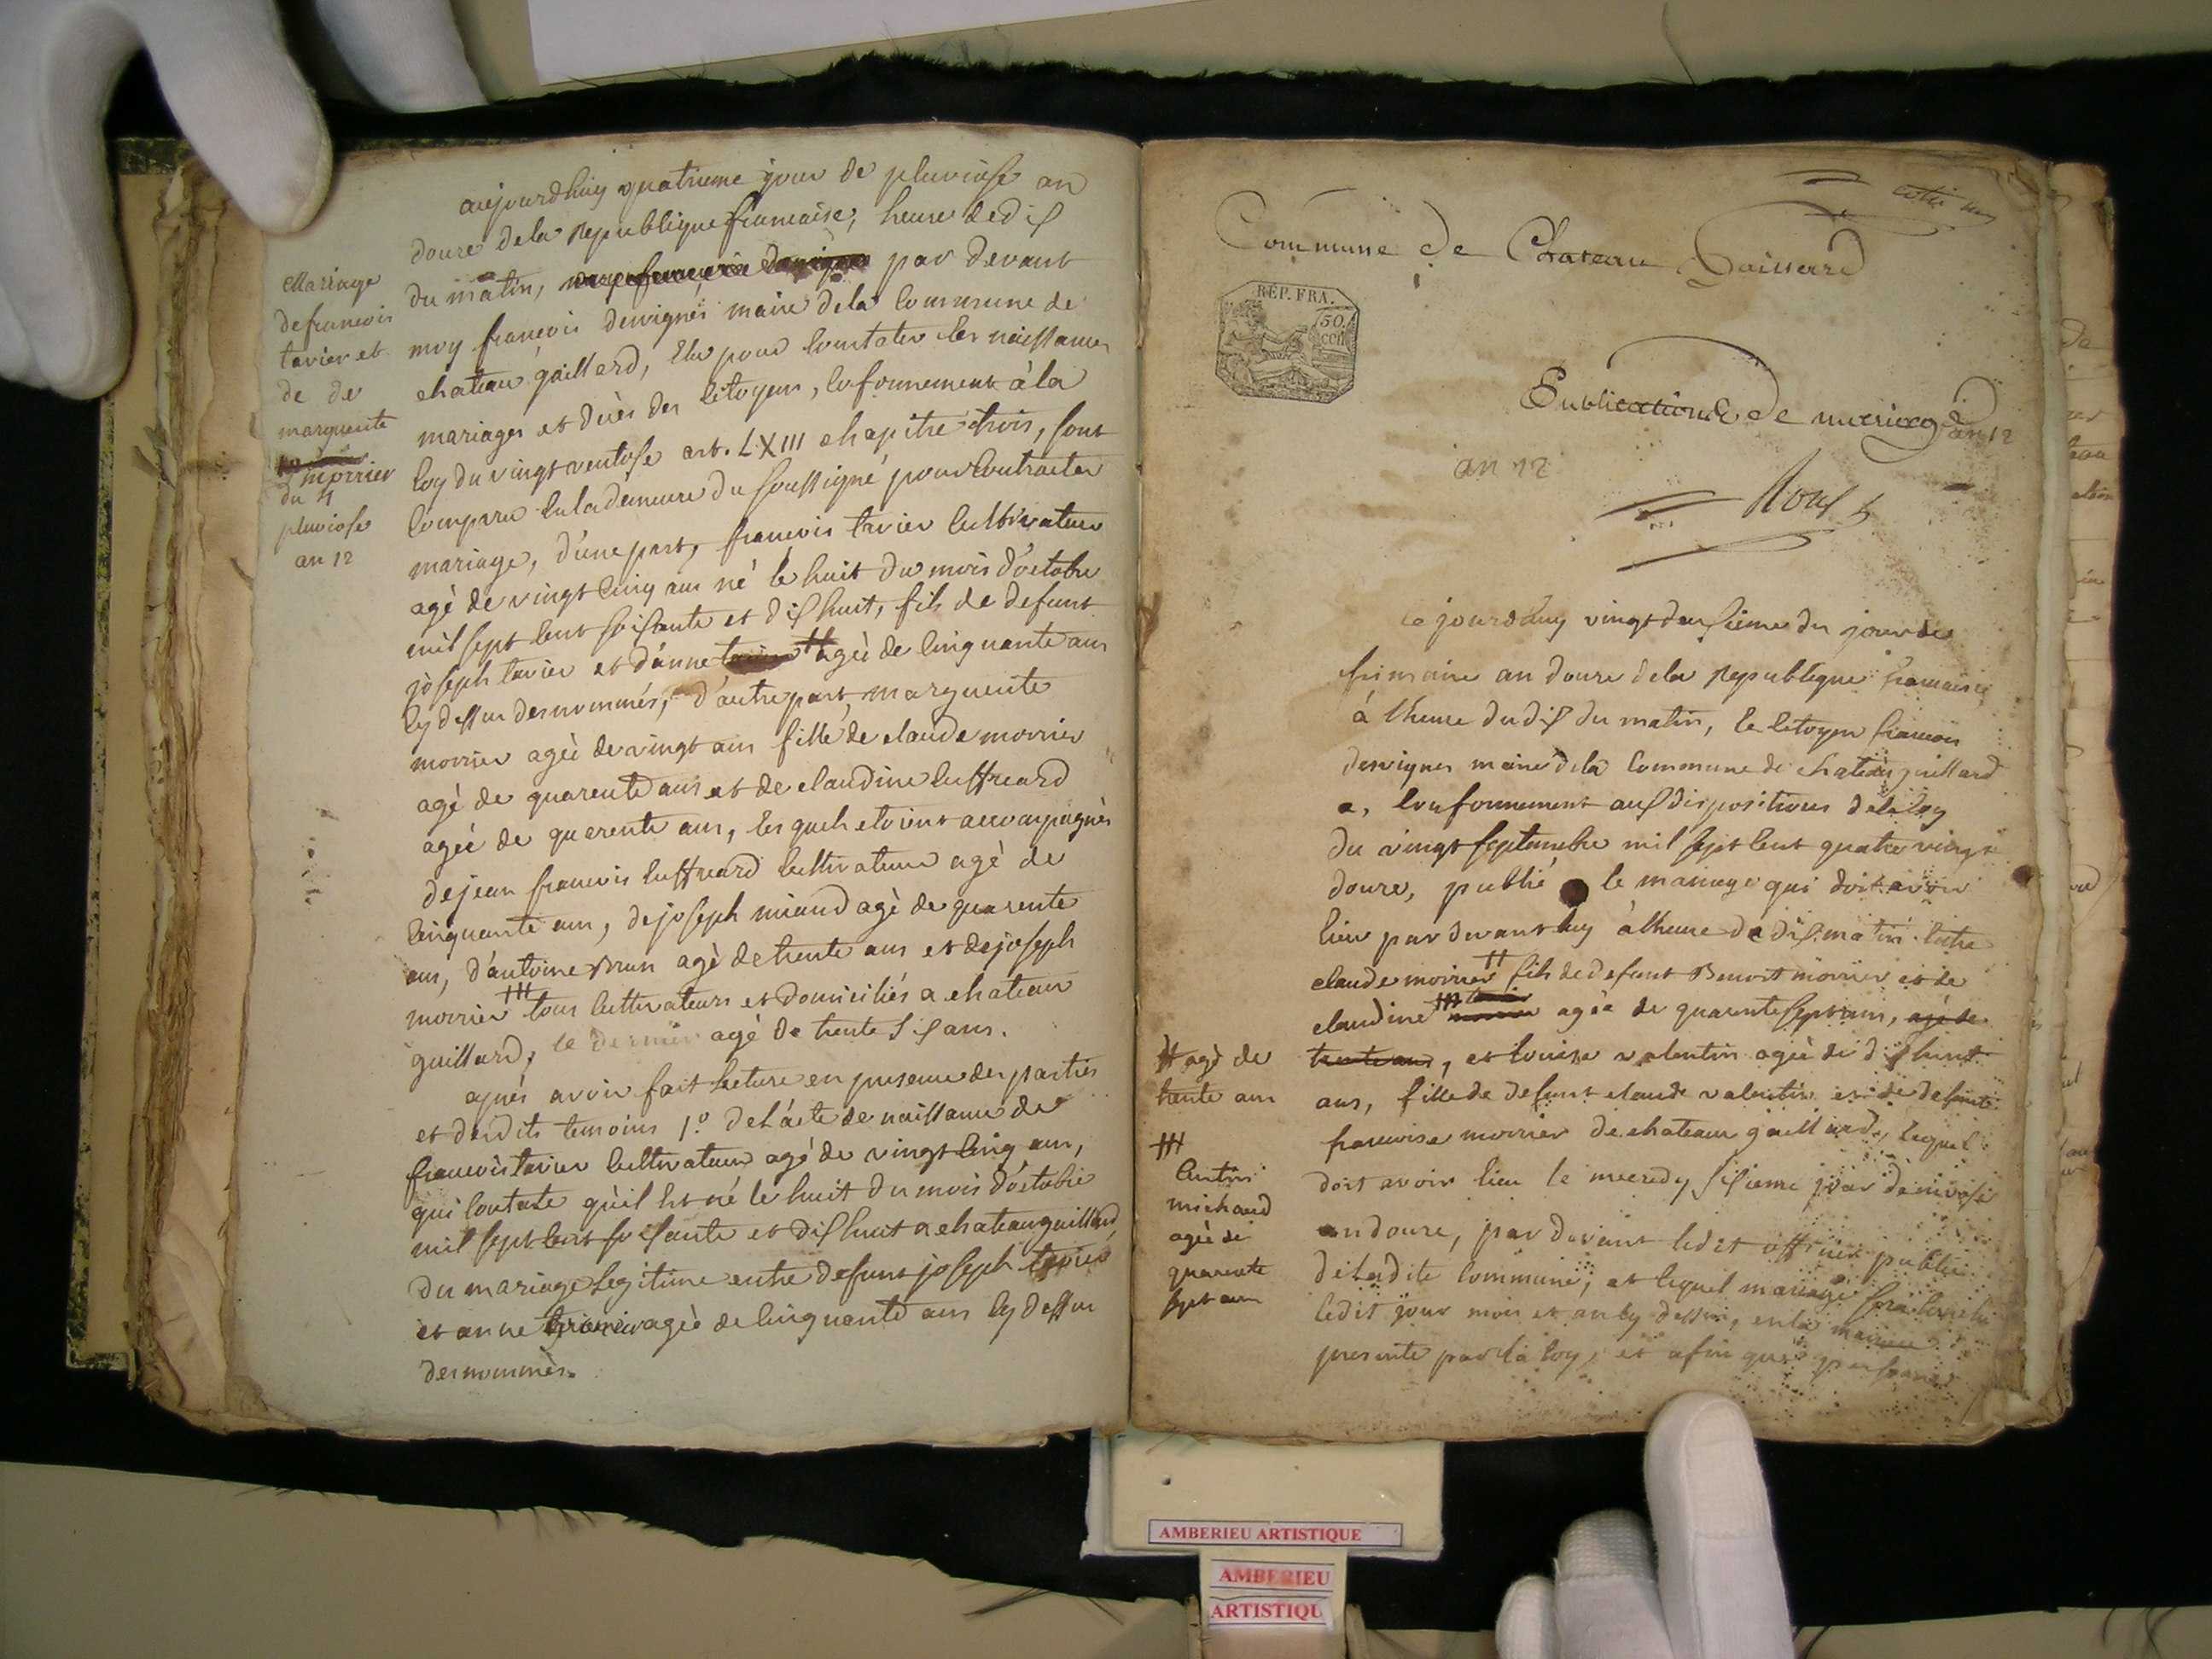 Mariage
de francois
tavier et
de de
marguerite
morrier
du 4
pluviose
an 12
aujourdhuy quatrieme jour de pluviose an
douze dela republique francaise, heure de dix
du matin, par devant
moy françois desvignes maire dela Commune de
chateau gaillard, Elu pour Constater les naissances
mariages et dués des Citoyens, Conformement à la
loy du vingt ventose art. LXIII chapitre trois, sont
Comparu en la demeure du soussigné pour Contracter
mariage, d'une part, francois tavier Cultivateur
agé de vingt Cinq ans né le huit du mois d'octobre
mil sept Cent soisente et dix huit, fils de defunt
joseph tavier et d'anne agée de Cinquante ans
Cy dessus desnommés, d'autre part, marguerite
morrier agée de vingt ans fille de claude morrier
agé de quarente ans et de claudine Cuffreard
agée de quarente ans, les quels etoient accompagnés
de jean francois Cuffreard Cultivateur agé de
Cinquante ans, de joseph miand agé de quarente
ans, d'antoine Brun agé de trente ans et de joseph
morrier ttt tous Cultivateurs et domiciliés a chateau
gaillard, le dernier agé de trente six ans.
après avoir fait lecture en presence des parties
et desdits temoins 1.º de L'acte de naissance de
francois tavier Cultivateur agé de vingt Cinq ans,
qui Contate qu'il Est né le huit du mois d'octobre
mil sept Cent soisante et dix huit a chateau gaillard
du mariage legitime entre defunt joseph tavier
et anne agée de Cinquante ans Cy dessus
desnommés.
Commune de Chateau Gaillard
RÉP. FRA.
50.
cen
Publications de mariage
an 12
an 12
Ce jourdhuy vingt deusieme du jour de
frimaire an douze dela republique francaise
à lheure du dix du matin, le Citoyen francois
desvignes maire dela Commune de chateau gaillard
a, Conformement aux dispositions dela loy
du vingt septembre mil sept Cent quatre vingt
douze, publié le mariage qui doit avoir
lieu par devant luy à lheure de dix matin Entre
claude morrier tt fils de defunt Benoit morrier et de
claudine ttt agée de quarente sept ans, agé de
trente ans, et louise valentin agée de dix huit
ans, fille de defunt claude valentin et de defunte
francoise morrier de chateau gaillard, lequel
doit avoir lieu le mecredy sisieme jour de nivose
an douze, par devant ledit officier public
de Ladite Commune, et lequel mariage sera
ledit jour mois et an Cy dessus, en la maison
prescrite par la loy, et afin que personne
tt agé de
trente ans
ttt
michaud
agée de
quarente
sept ans
AMBERIEU ARTISTIQUE
AMBERIEU
ARTISTIQU